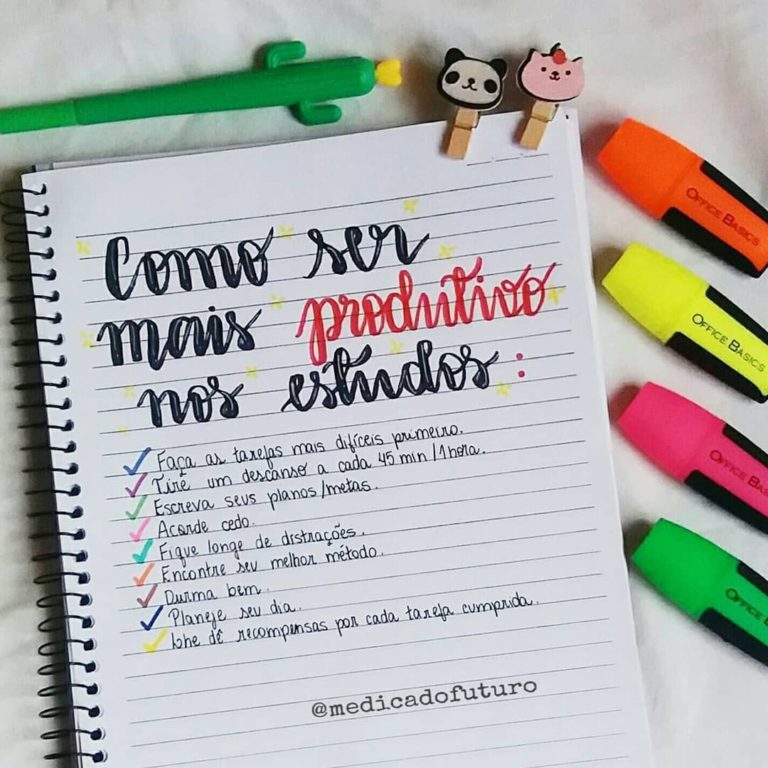 Como ser
mais produtivo
nos estudos:
Faça as tarefas mais difíceis primeiro.
Tire um descanso a cada 45 min/1 hora.
Escreva seus planos/metas.
Acorde cedo.
Fique longe de distrações.
Encontre seu melhor método.
Durma bem.
Planeje seu dia.
Lhe dê recompensas por cada tarefa cumprida.
@medicadofuturo
OFFICE BASICS
OFFICE BASICS
OFFICE BASICS
OFFICE BASICS